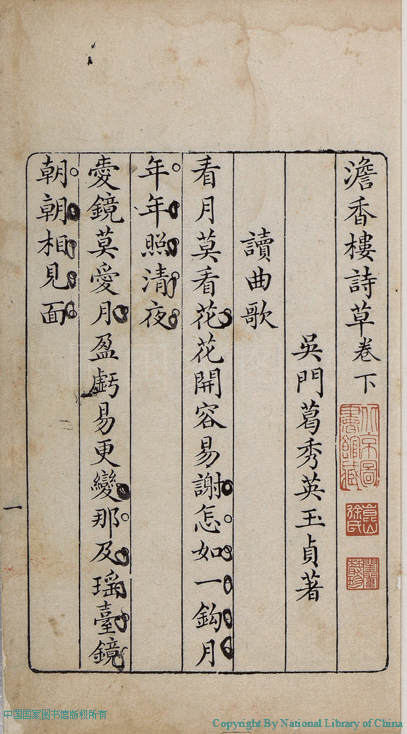 澹香樓詩草卷下
吳門葛秀英玉貞著
讀曲歌
看月莫看花花開容易謝怎如一鈎月
年年照清夜
愛鏡莫愛月盈虧易更變那及瑤臺鏡
朝朝相見面
一
北京圖書館藏
崑山徐氏
中国国家图书馆版权所有
Copyright By National Library of China